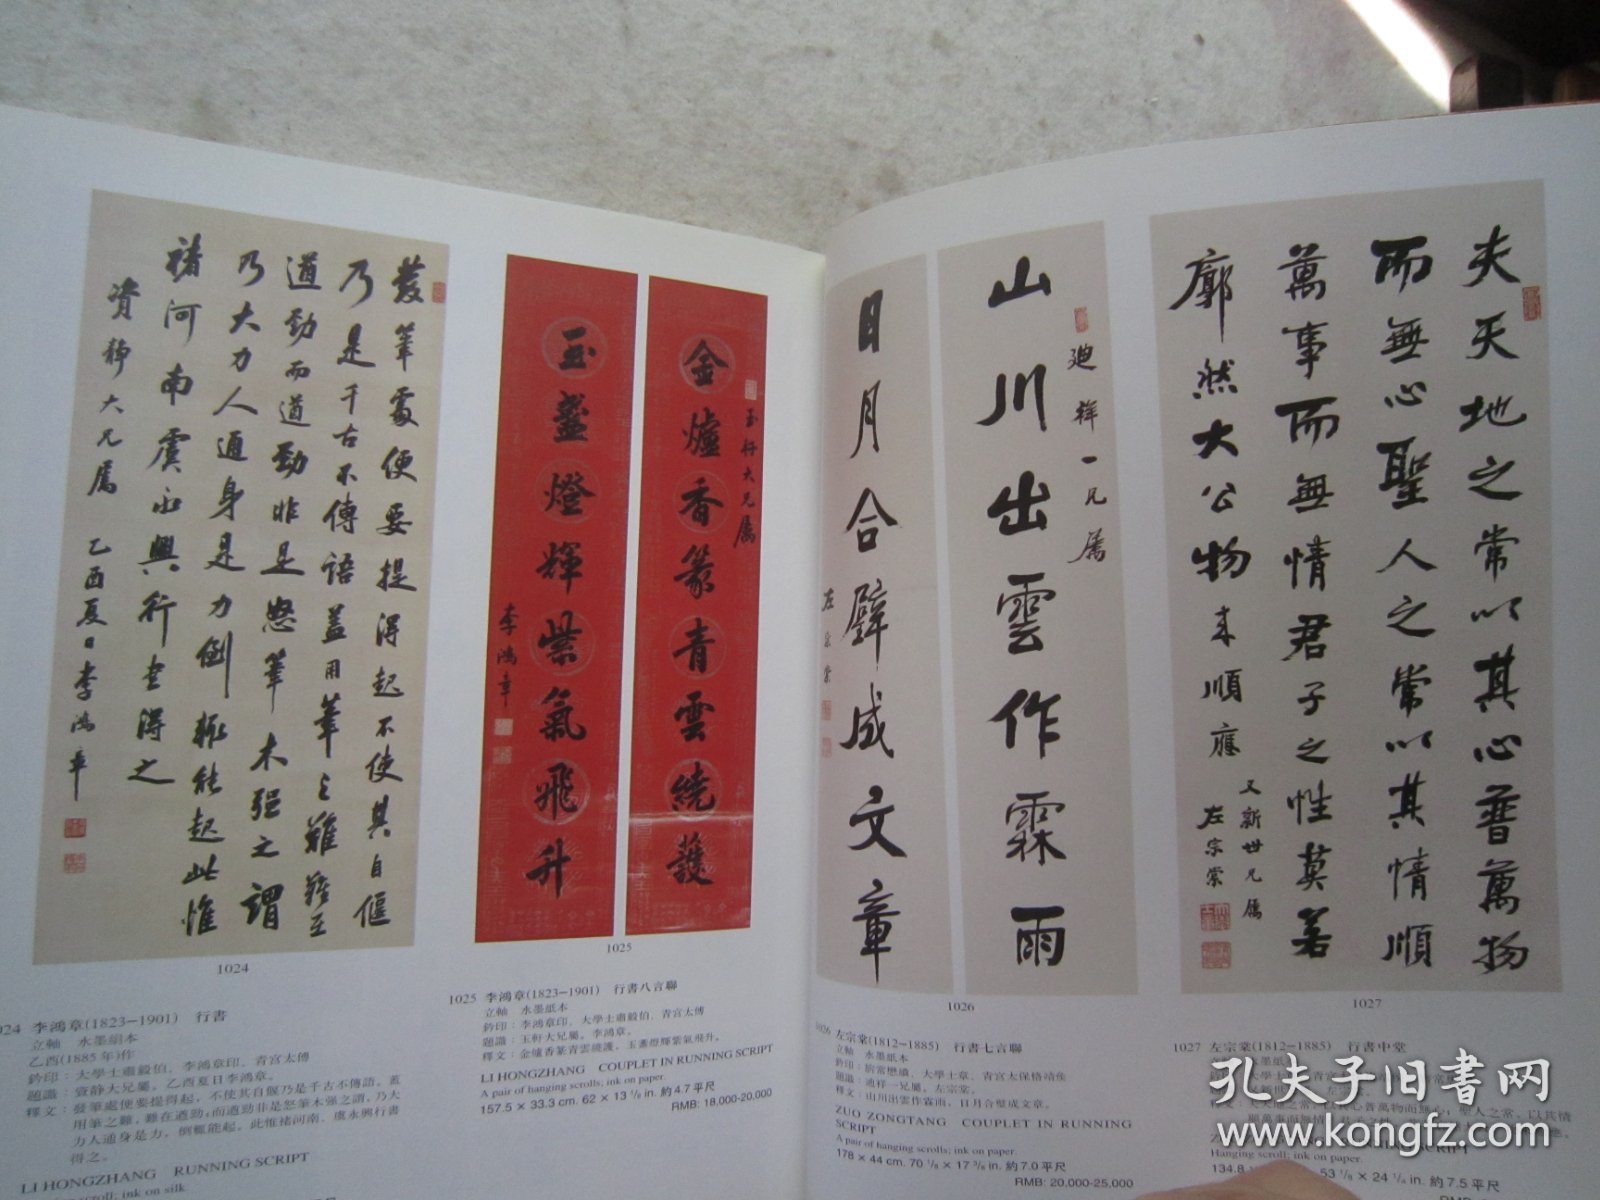 發筆處便要提得起不使其自偃
乃是千古不傳語蓋用筆之難難在
遒勁而遒勁非是怒筆木强之謂
乃大力人通身是力倒輒能起此惟
褚河南虞永興行書得之
資靜大兄屬 乙酉夏日李鴻章
1024
金爐香篆青雲繞護
玉軒大兄屬
玉盞燈輝紫氣飛升
李鴻章
1025
山川出雲作霖雨
迪祥一兄屬
日月合璧成文章
左宗棠
1026
夫天地之常以其心普萬物
而無心聖人之常以其情順
萬事而無情君子之性莫若
廓然大公物來順應
又新世兄屬
左宗棠
1027
024 李鴻章(1823-1901) 行書
立軸 水墨絹本
乙酉(1885年)作
鈐印：大學士肅毅伯、李鴻章印、青宮太傅
題識：資静大兄屬。乙酉夏日李鴻章。
釋文：發筆處便要提得起，不使其自偃乃是千古不傳語。蓋
用筆之難，難在遒勁；而遒勁非是怒筆木强之謂，乃大
力人通身是力，倒輒能起。此惟褚河南、虞永興行書
得之。
LI HONGZHANG RUNNING SCRIPT
scroll; ink on silk
1025 李鴻章(1823-1901) 行書八言聯
立軸 水墨紙本
鈐印：李鴻章印、大學士肅毅伯、青宮太傅
題識：玉軒大兄屬。李鴻章。
釋文：金爐香篆青雲繞護，玉盞燈輝紫氣飛升。
LI HONGZHANG COUPLET IN RUNNING SCRIPT
A pair of hanging scrolls; ink on paper.
157.5 × 33.3 cm. 62 × 13 1/8 in. 約 4.7 平尺
RMB: 18,000-20,000
1026 左宗棠(1812-1885) 行書七言聯
立軸 水墨紙本
題識：迪祥一兄屬。左宗棠。
釋文：山川出雲作霖雨，日月合璧成文章。
ZUO ZONGTANG COUPLET IN RUNNING
SCRIPT
A pair of hanging scrolls; ink on paper.
178 × 44 cm. 70 1/8 × 17 3/8 in. 約 7.0 平尺
RMB: 20,000-25,000
1027 左宗棠(1812-1885) 行書中堂
SCRIPT
Hanging scroll; ink on paper.
134.8 53 1/8 × 24 1/4 in. 約 7.5 平尺
孔夫子旧书网
www.kongfz.com